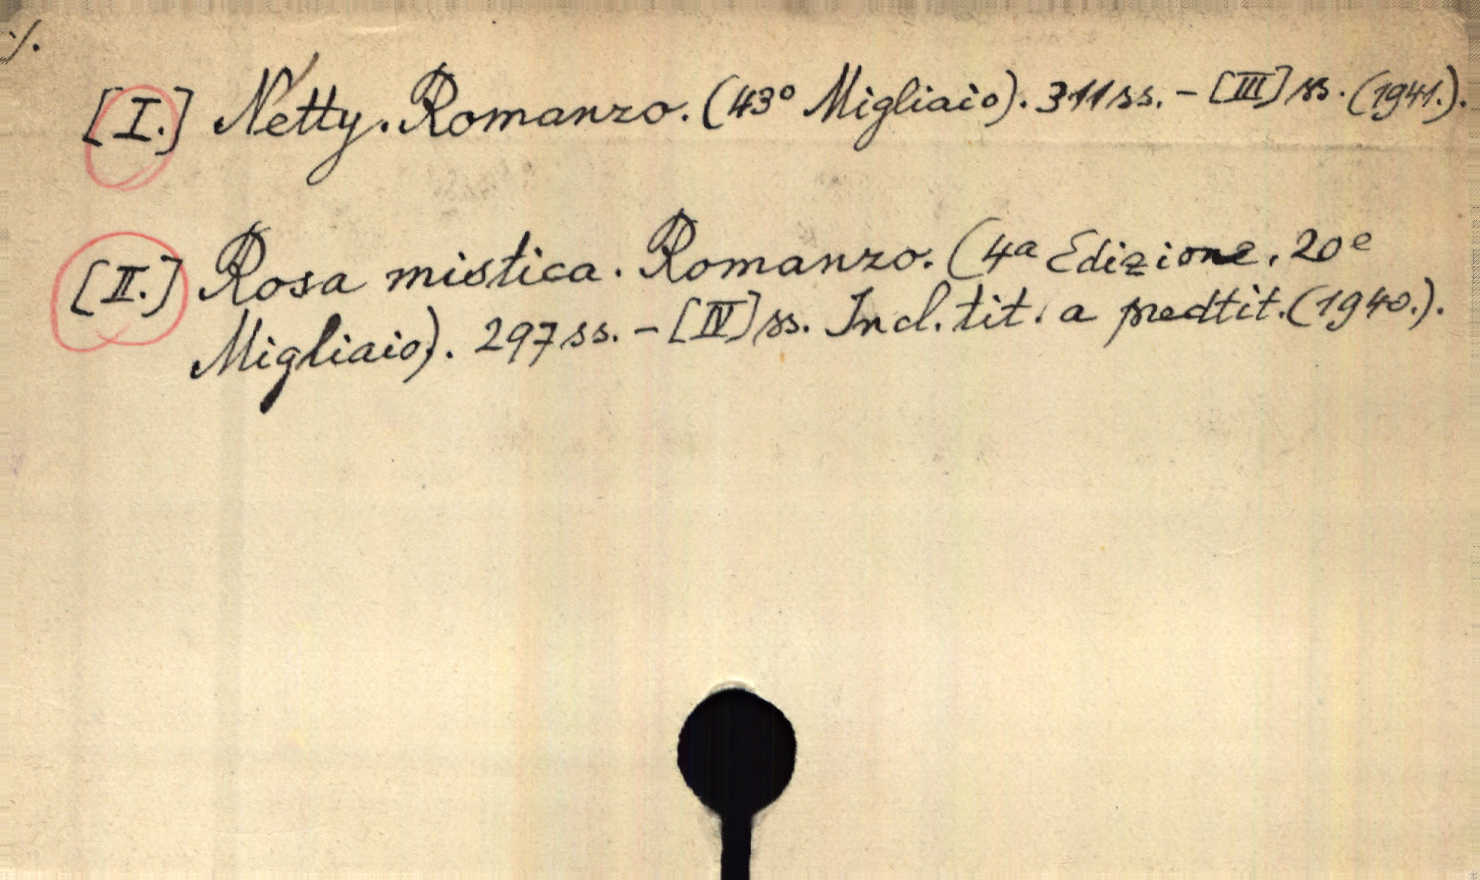 ./.
[I.] Netty. Romanzo. (43º Migliaio). 311 ss. - [III] ss. (1941.).
[II.] Rosa mistica. Romanzo. (4a Edizione, 20e
Migliaio). 297 ss. - [IV] ss. Incl. tit. a predtit. (1940.).